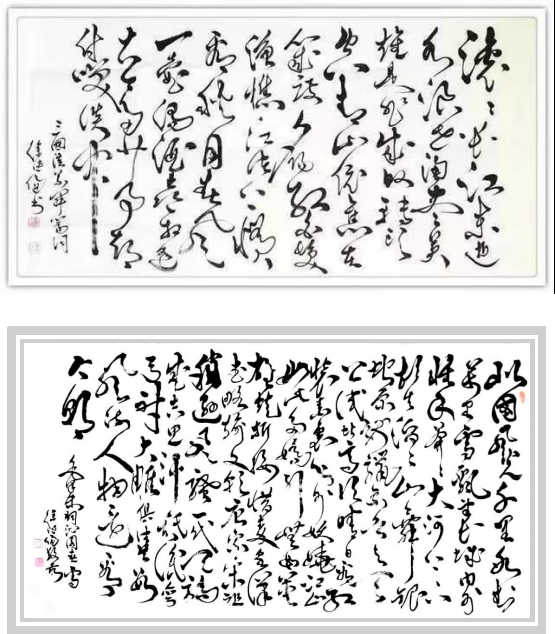 滚々长江东逝
水浪花淘尽英
雄是非成败转头
空青山依旧在
几度夕阳红白发
渔樵江渚上惯
看秋月春风
一壶浊酒喜相逢
古今多少事都
付笑谈中
三国演义开篇词
北国风光千里冰封
万里雪飘望长城内外
惟余莽々大河上下
顿失滔々山舞银
蛇原驰蜡象欲与天
公试比高须晴日看红
装素裹分外妖娆江山
如此多娇引无数英
雄竞折腰惜秦皇汉
武略输文采唐宗宋祖
稍逊风骚一代天骄
成吉思汗只识弯
弓射大雕俱往矣数
风流人物还看
今朝
毛泽东词沁园春雪